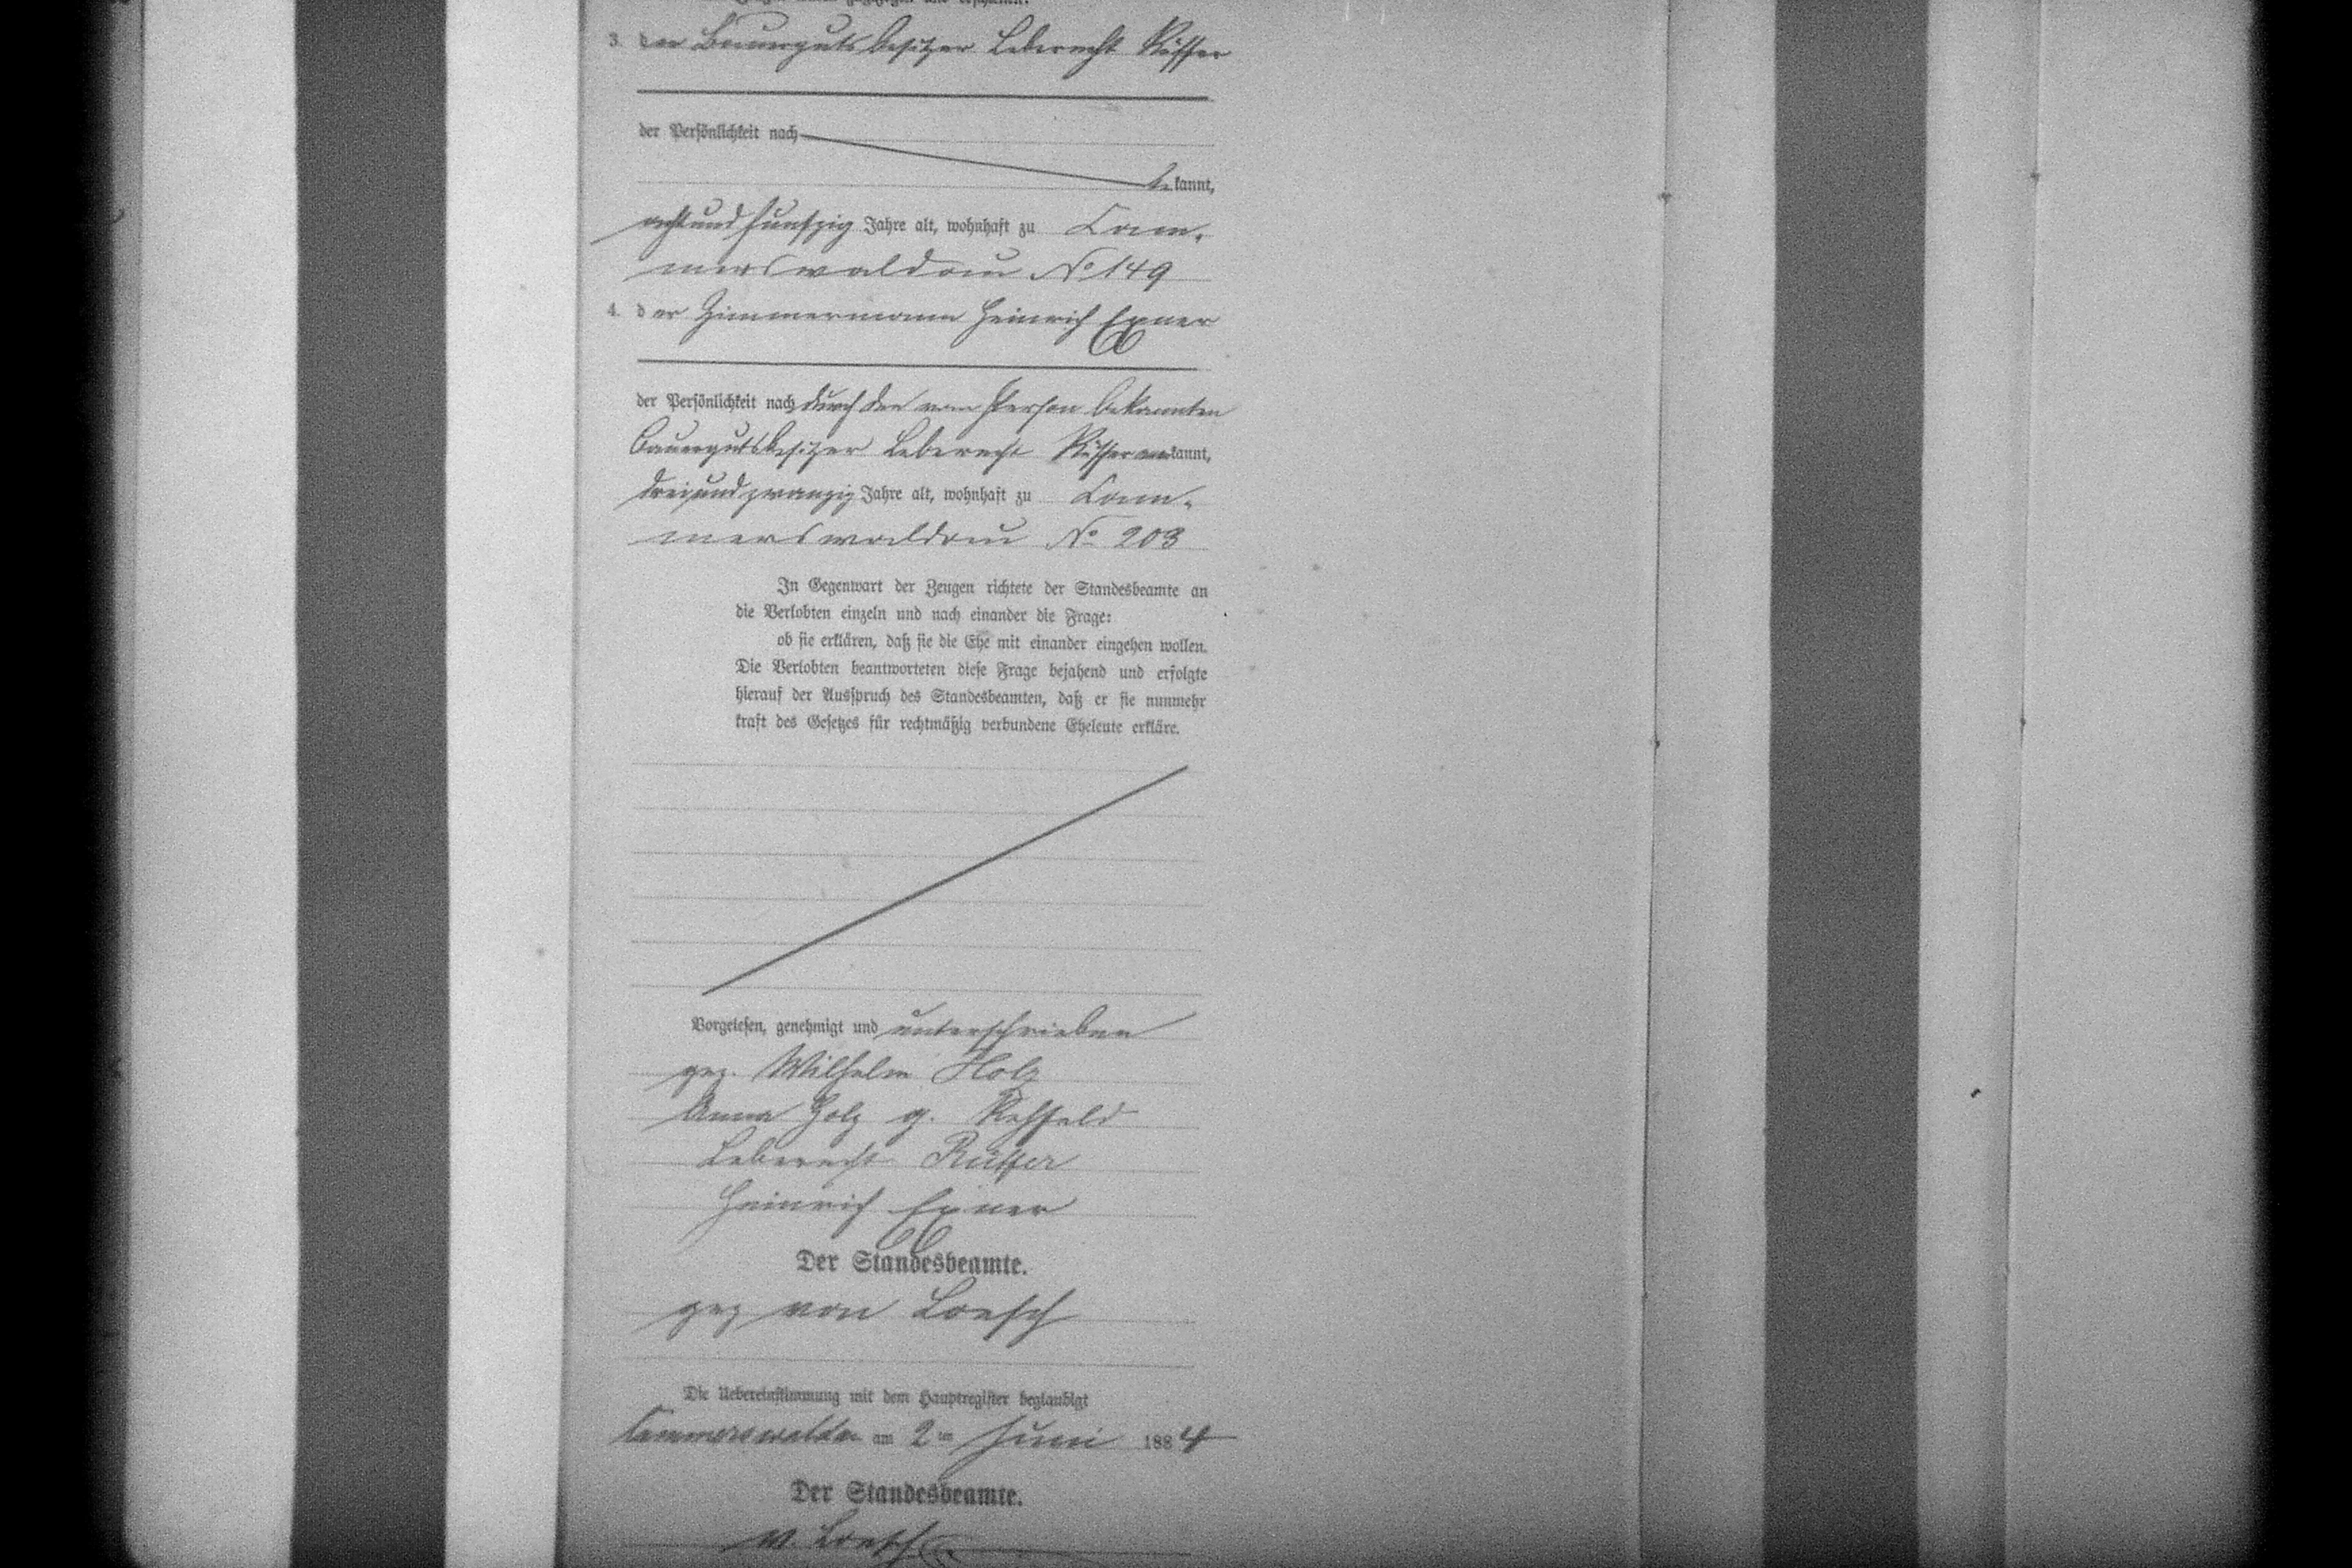 3. der Bauergutsbesitzer Leberecht Rüffer
der Persönlichkeit nach
be kannt,
achtundfunfzig Jahre alt, wohnhaft zu Cam-
merswaldau No 149
4. der Zimmermann Heinrich Exner
der Persönlichkeit nach durch den von Person bekannten
Bauergutsbesitzer Leberecht Rüffer anerkannt,
dreiundzwanzig Jahre alt, wohnhaft zu Cam-
merswaldau No 203
In Gegenwart der Zeugen richtete der Standesbeamte an
die Verlobten einzeln und nach einander die Frage:
ob sie erklären, daß sie die Ehe mit einander eingehen wollen.
Die Verlobten beantworteten diese Frage bejahend und erfolgte
hierauf der Ausspruch des Standesbeamten, daß er sie nunmehr
kraft des Gesetzes für rechtmäßig verbundene Eheleute erkläre.
Vorgelesen, genehmigt und unterschrieben
gez. Wilhelm Holz
Anna Holz g. Rehfeld
Leberecht Rüffer
Heinrich Exner
Der Standesbeamte.
gez von Loesch
Die Uebereinstimmung mit dem Hauptregister beglaubigt
Cammerswaldau am 2ten Juni 1884
Der Standesbeamte.
v. Loesch